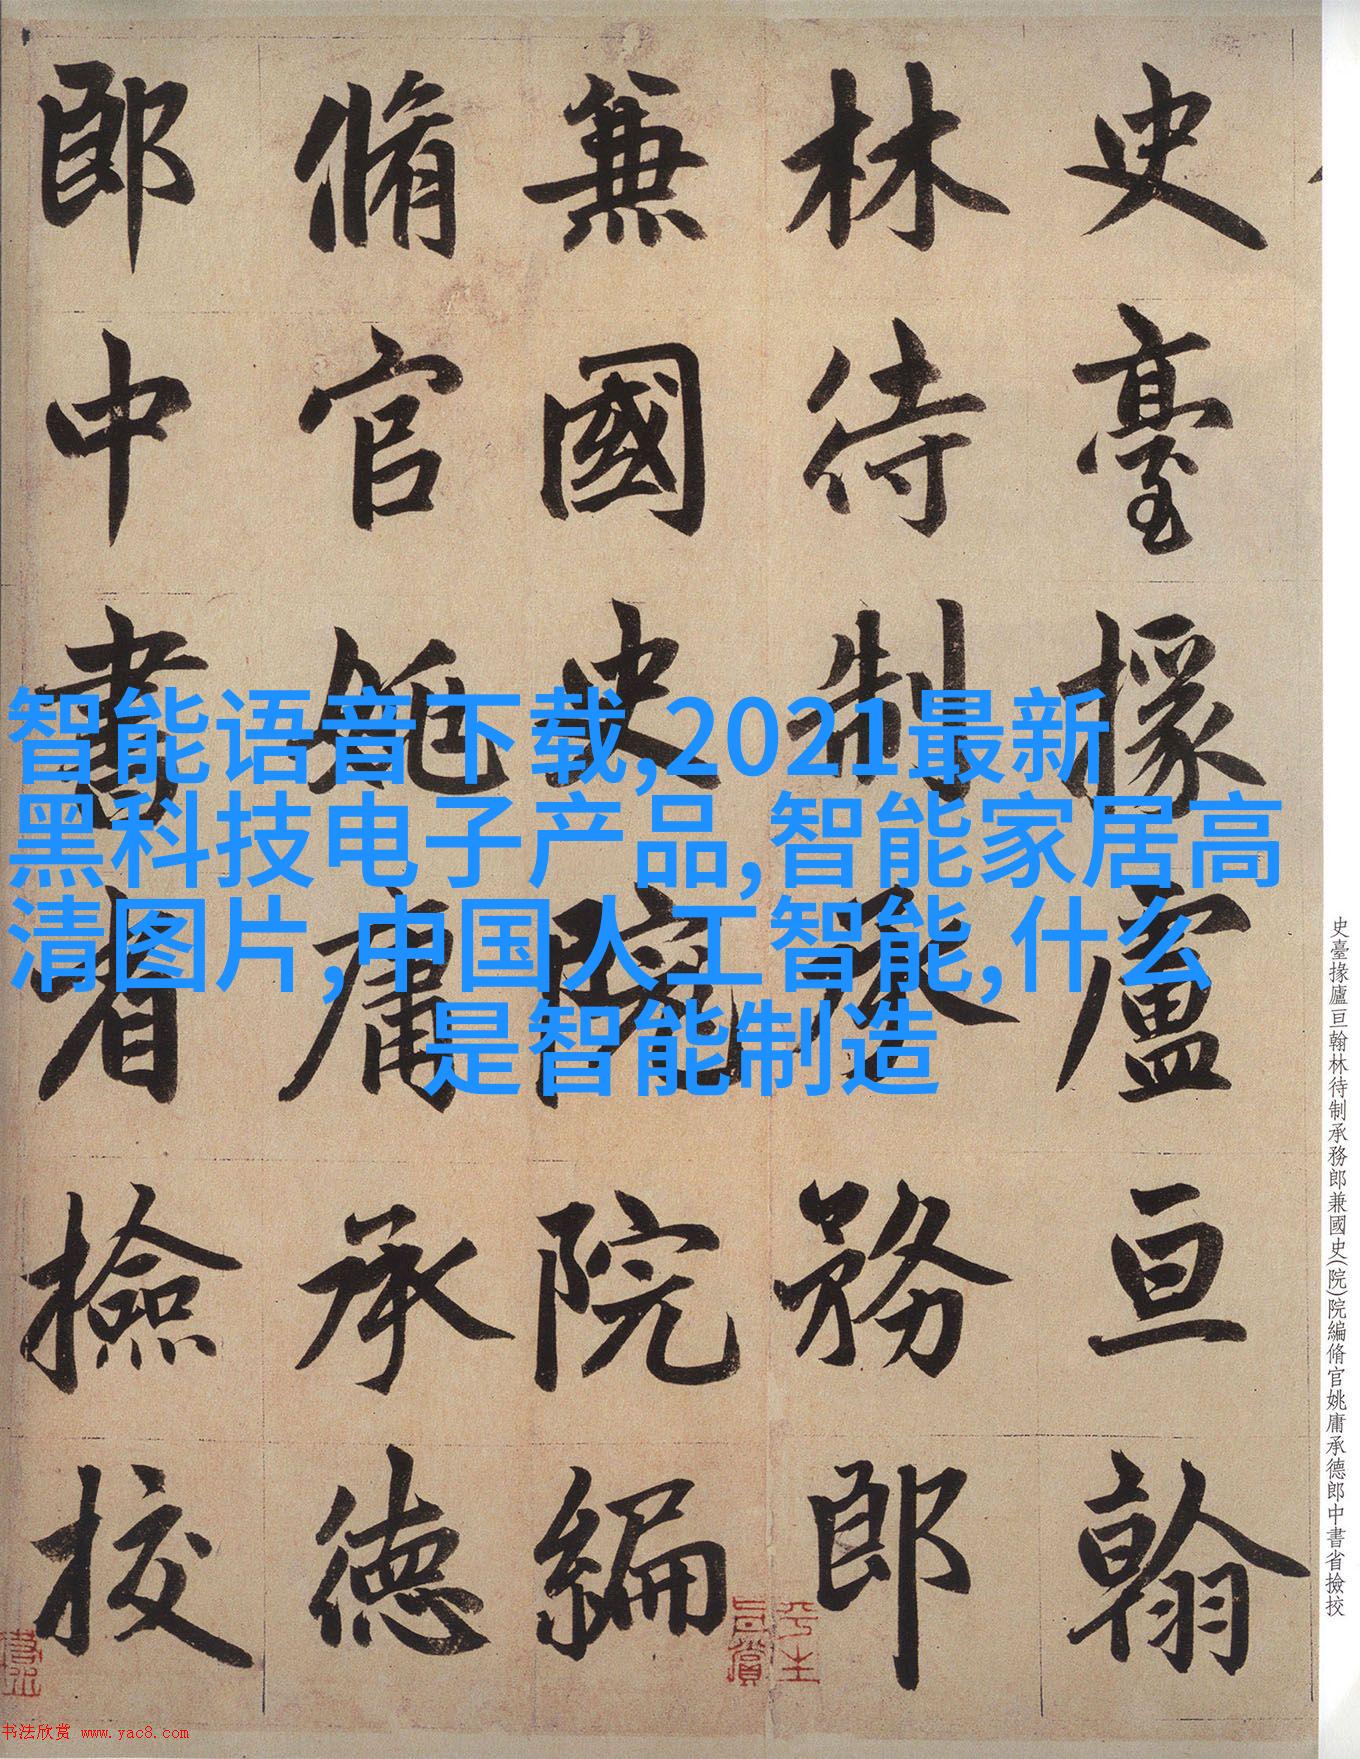 史臺掾廬亘翰
林待制承務郎
兼國史院院編
脩官姚庸承德
郎中書省撿挍
智能语音下载,2021最新
黑科技电子产品,智能家居高
清图片,中国人工智能,什么
是智能制造
史臺掾廬亘翰林待制承務郎兼國史(院)院編脩官姚庸承德郎中書省撿挍
书法欣赏 www.yac8.com